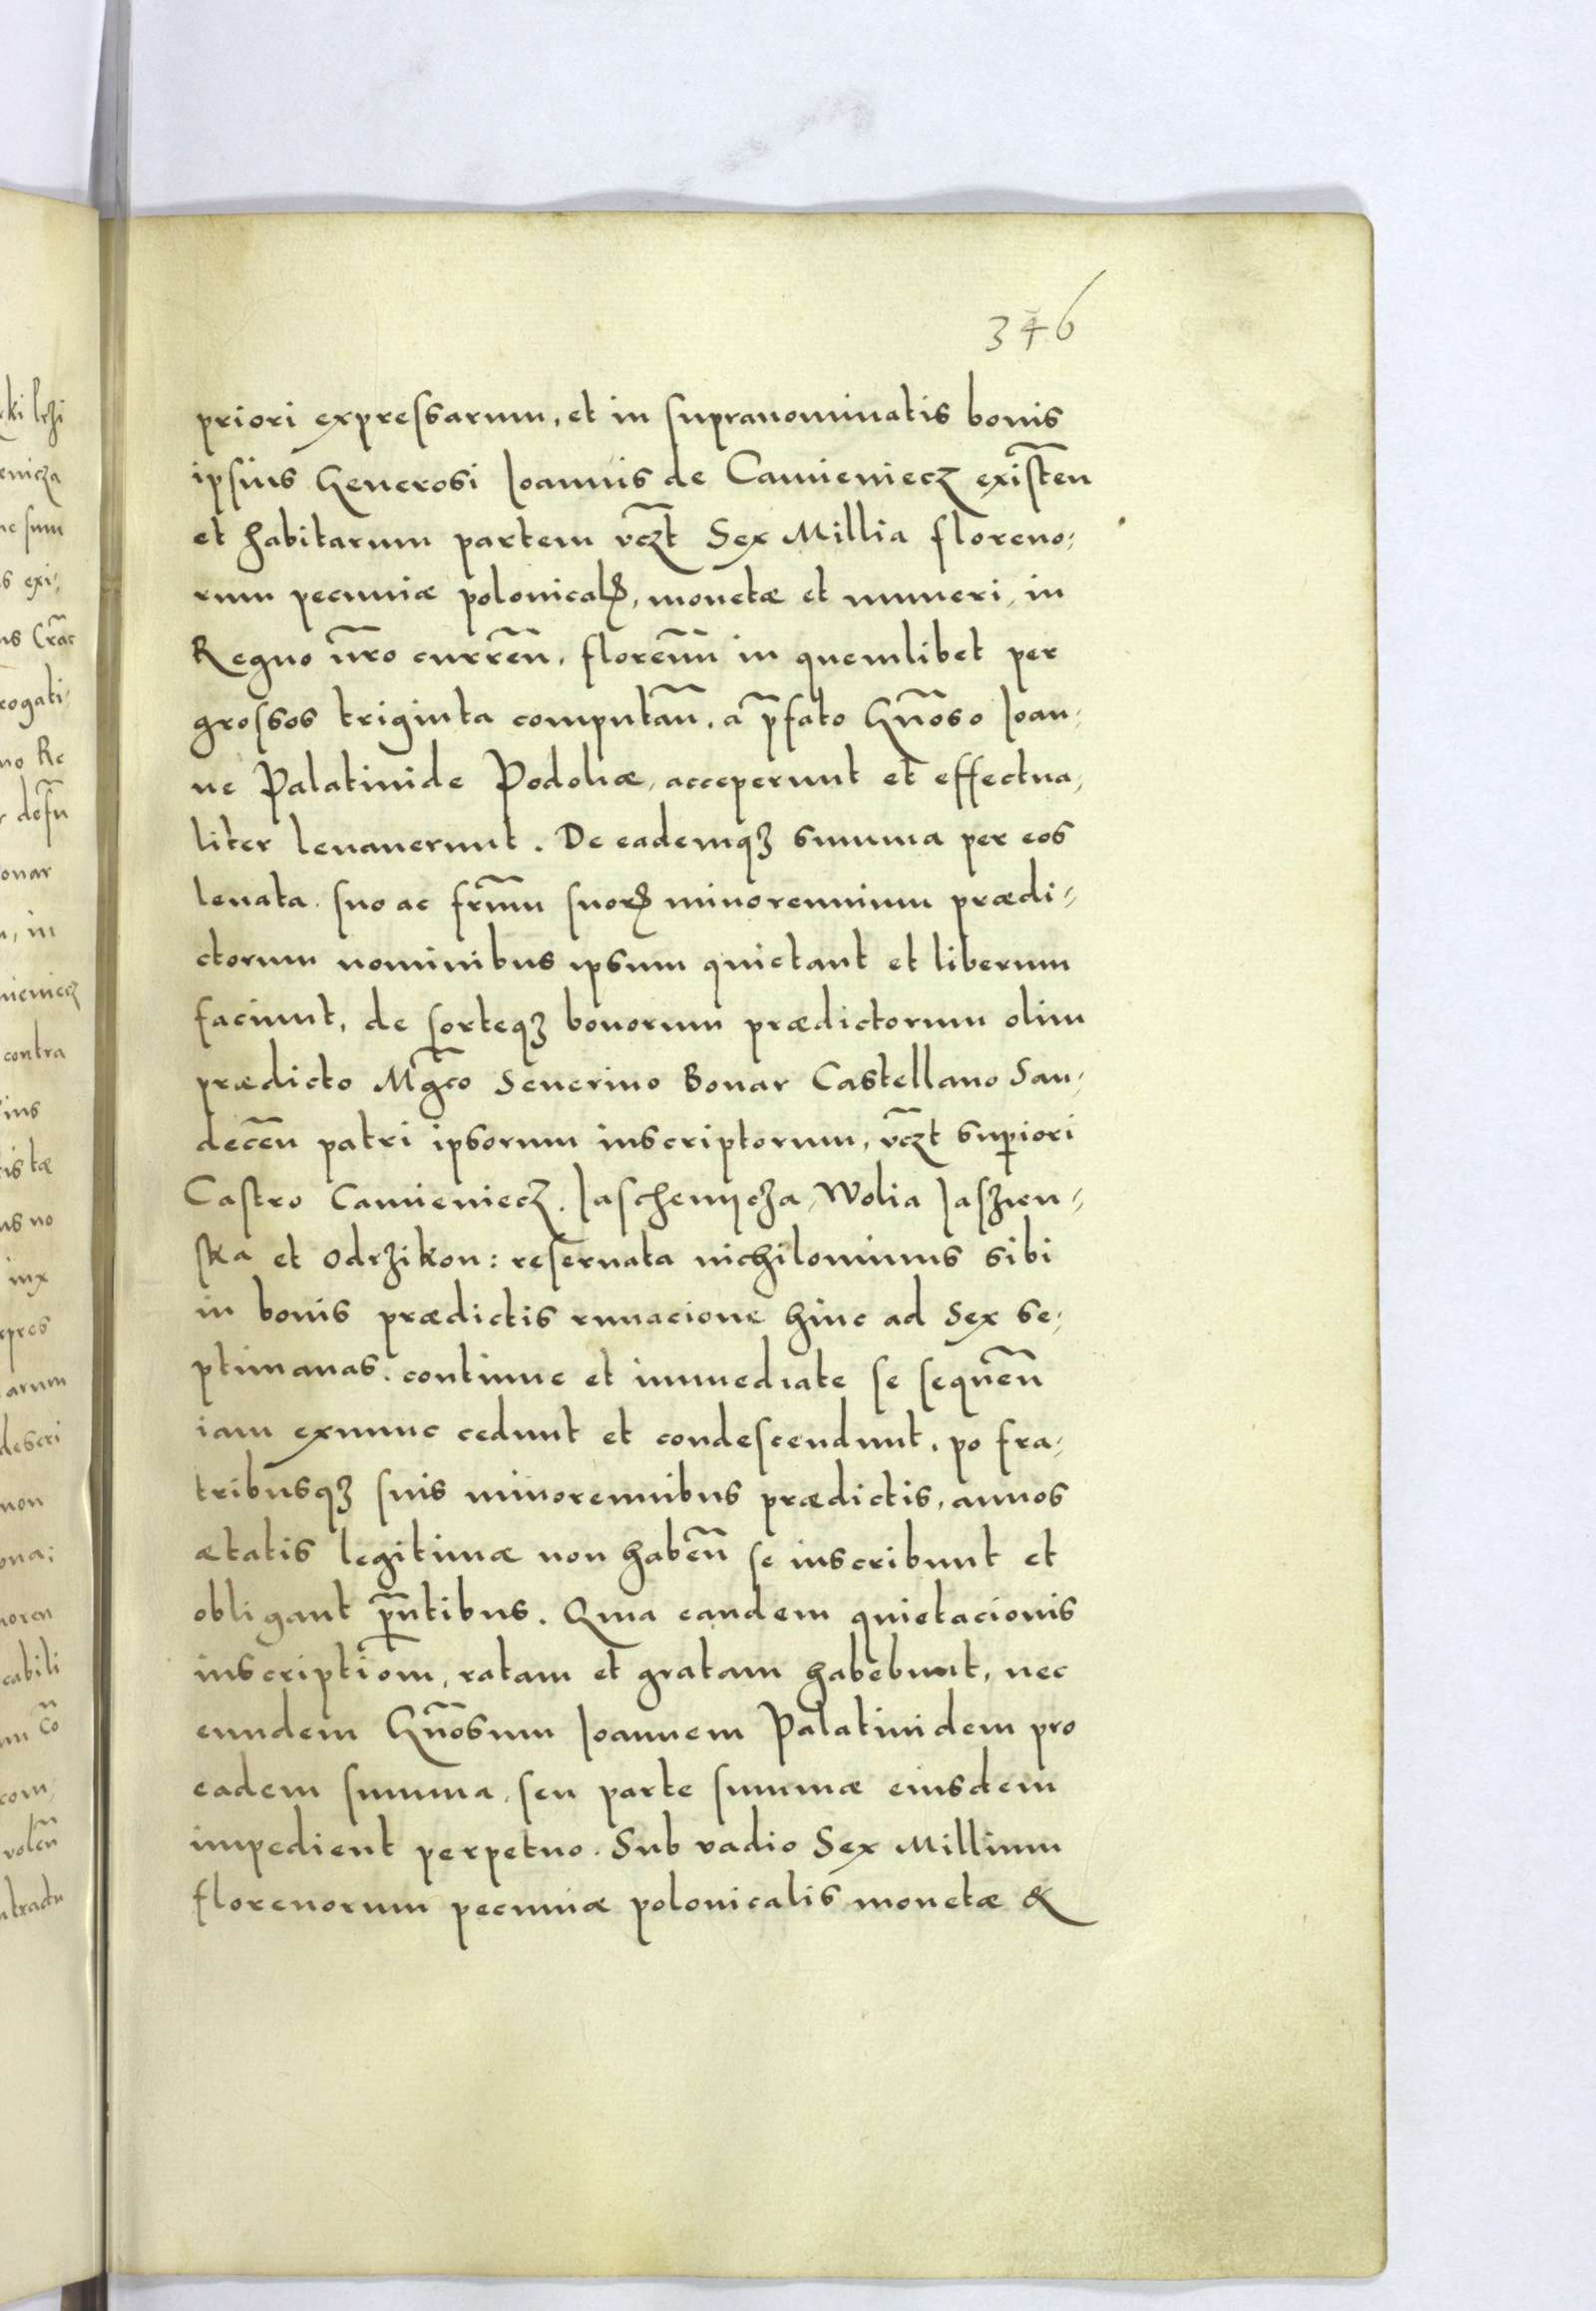 346
priori expressarum, et in supranominatis bonis
ipsius Generosi Joannis de Camieniecz existen̄
et habitarum partem vcz̄t Sex Millia floreno-
rum pecuniæ polonicalꝭ, monetæ et numeri, in
Regno n̄ro currēn, florenū in quemlibet per
grossos triginta computan̄, a p̄fato Gn̄oso Joan-
ne Palatinide Podoliæ, acceperunt et effectua-
liter leuauerunt. De eademqʒ summa per eos
leuata suo ac fr̄um suorꝝ minorennium prædi-
ctorum nominibus ipsum quietant et liberum
faciunt, de sorteqʒ bonorum prædictorum olim
prædicto Mgc̄o Seuerino Bonar Castellano San-
decēn patri ipsorum inscriptorum, vcz̄t suꝑiori
Castro Camieniecz. Jaschenycza, Wolia Jaszien-
ska et Odrzikon: reseruata nichilominus sibi
in bonis prædictis euacione hinc ad Sex se-
ptimanas. continue et immediate se sequēn
iam exnunc cedunt et condescendunt. po fra-
tribusqʒ suis minorennibus prædictis, annos
ætatis legitimæ non habēn se inscribunt et
obligant p̄ntibus. Quia eandem quietacionis
inscriptiōm, ratam et gratam habebunt, nec
eundem Gn̄osum Joannem Palatinidem pro
eadem summa, seu parte summæ eiusdem
impedient perpetuo. Sub vadio Sex Millium
florenorum pecuniæ polonicalis monetæ &